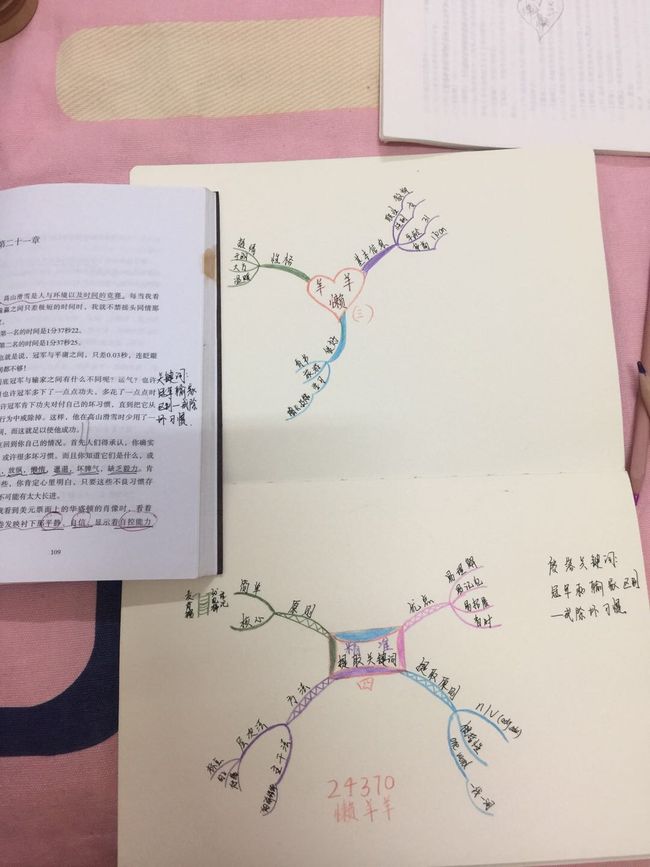 第二十一章
高山滑雪是人与环境以及时间的竞赛。每当我看
赢之间只差极短的时间时，我就不禁接头同情那
第一名的时间是1分37秒22。
第二名的时间是1分37秒25。
也就是说，冠军与平庸之间，只差0.03秒，连眨眼
间都不够！
底冠军与输家之间有什么不同呢？运气？也许
也许冠军多下了一点点功夫，多花了一点点时
许冠军肯下功夫对付自己的坏习惯，直到把它从
行为中戒除掉。这样，他在高山滑雪时少用了一
间，而这就足以使他成功。
回到你自己的情况。首先人们得承认，你确实
或许很多坏习惯。而且你知道它们是什么，或
放纵，懒惰，邋遢，坏脾气，缺乏毅力。肯
些，你肯定心里明白，只要这些不良习惯存
不可能有太大长进。
我看到美元票面上的华盛顿的肖像时，看看
发映衬下那平静、自信、显示着自控能力
109
关键词:
冠军输家
区别—戒除
坏习惯
性格
大方
温暖
基本信息
羊羊
懒
(三)
学习
简单
核心
原则
优点
易理解
易记忆
省时
精准
提取关键词
四
方法
层次法
主干法
提取原则
n/v
一线一词
段落关键词:
冠军和输家区别
—戒除坏习惯
24370
懒羊羊